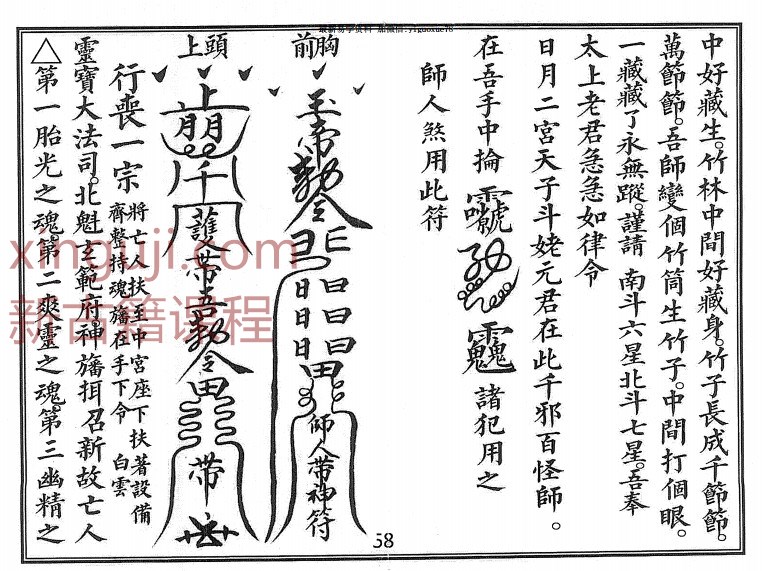 最新易学资料 加微信:yiguoxue78
中好藏生。竹林中間好藏身。竹子長成千節節。
萬節節。吾師變個竹筒生竹子。中間打個眼。
一藏藏了永無蹤。謹請 南斗六星北斗七星。吾奉
太上老君急急如律令
日月二宮天子斗姥元君在此千邪百怪師。
在吾手中掄
諸犯用之
師人煞用此符
胸前
玉帝勅令
日日日
日日日田
師人帶神符
頭上
上
千
護帶吾勅令田
帶
行喪一宗
將亡人扶至中宮座下扶著設備
齊整持魂旛在手下令 白雲
靈寶大法司。北魁玄範府。神旛拜召新故亡人
△第一胎光之魂。第二爽靈之魂。第三幽精之
58
xinguji.com
新古籍课程